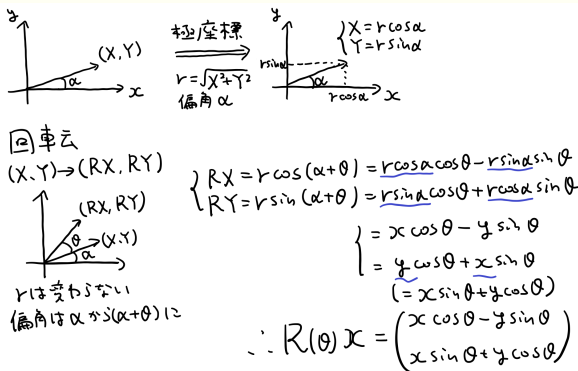 y
(X,Y)
α
x
極座標
r=√X²+Y²
偏角α
y
rsinα
α
rcosα
x
{X=rcosα
Y=rsinα
回転
(X,Y)→(RX,RY)
(RX,RY)
θ
(X,Y)
α
rは変わらない
偏角はαから(α+θ)に
{RX=rcos(α+θ)=rcosαcosθ-rsinαsinθ
RY=rsin(α+θ)=rsinαcosθ+rcosαsinθ
{=xcosθ-ysinθ
=ycosθ+xsinθ
(=xsinθ+ycosθ)
∴R(θ)x=(xcosθ-ysinθ
xsinθ+ycosθ)